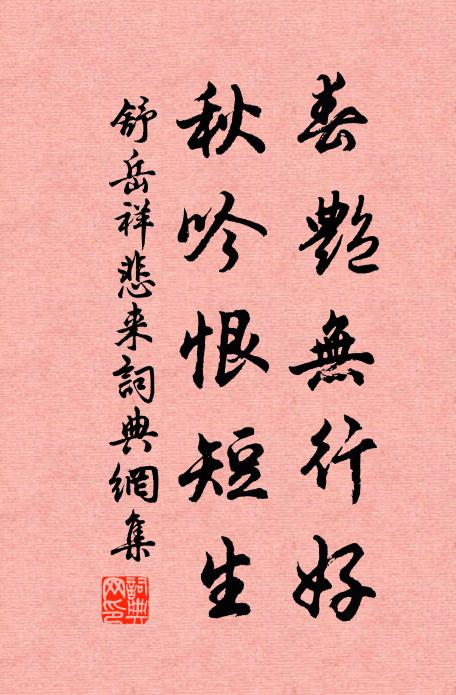 春艷無行好
秋吟恨短生
舒岳祥悲来詞典網集
詞典網印